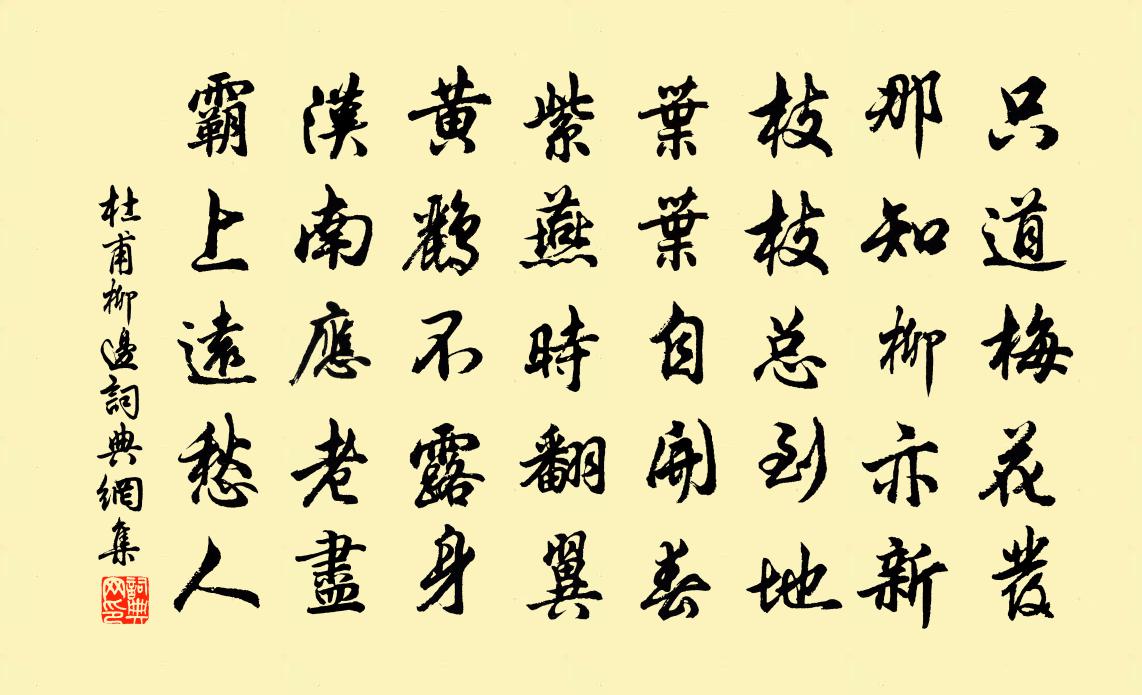 只道梅花發
那知柳亦新
枝枝总到地
葉葉自開春
紫燕時翻翼
黄鸝不露身
漢南應老盡
霸上遠愁人
杜甫柳邊詞典網集
詞典网印